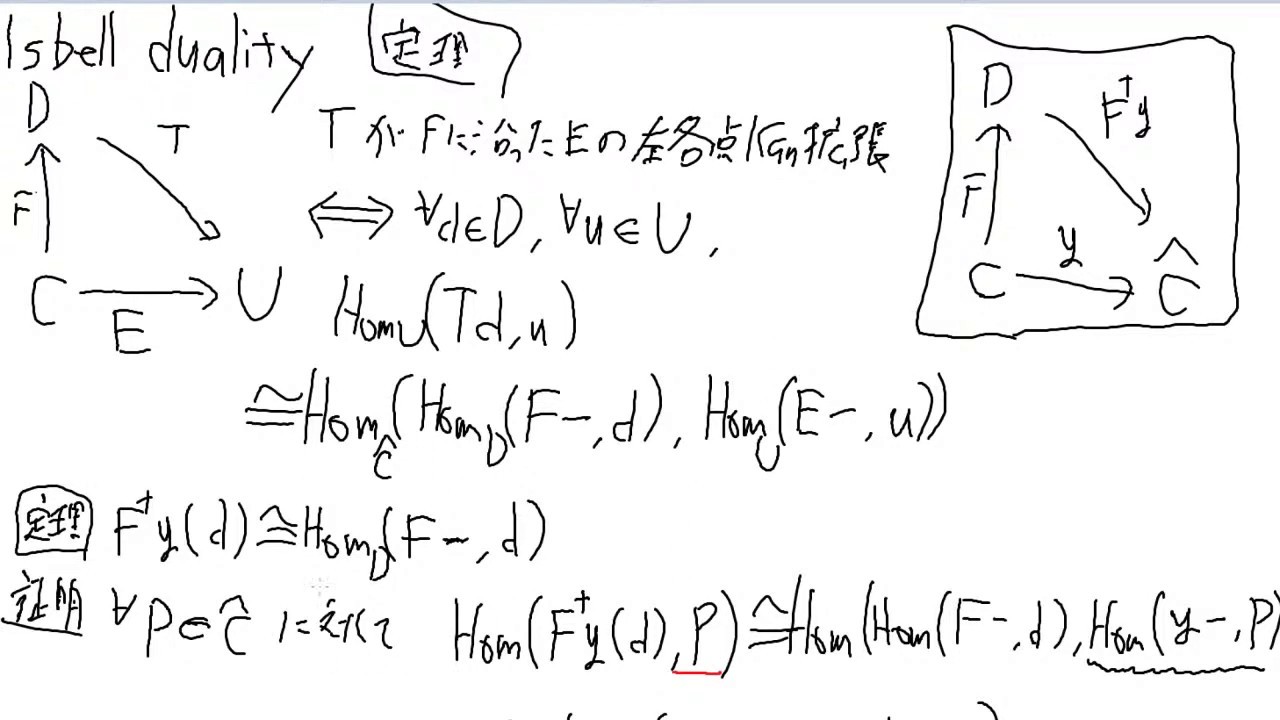 Isbell duality 定理
D
T
F
C
E
U
Tが Fに沿ったEの左各点Kan拡張
⟺ ∀d∈D, ∀u∈U,
Hom_U(Td, u)
≅Hom_Ĉ(Hom_D(F−, d), Hom_U(E−, u))
D
F†y
F
C
y
Ĉ
定理 F†y(d)≅Hom_D(F−, d)
証明 ∀P∈Ĉ に対して Hom(F†y(d), P)≅Hom(Hom(F−, d), Hom(y−, P)